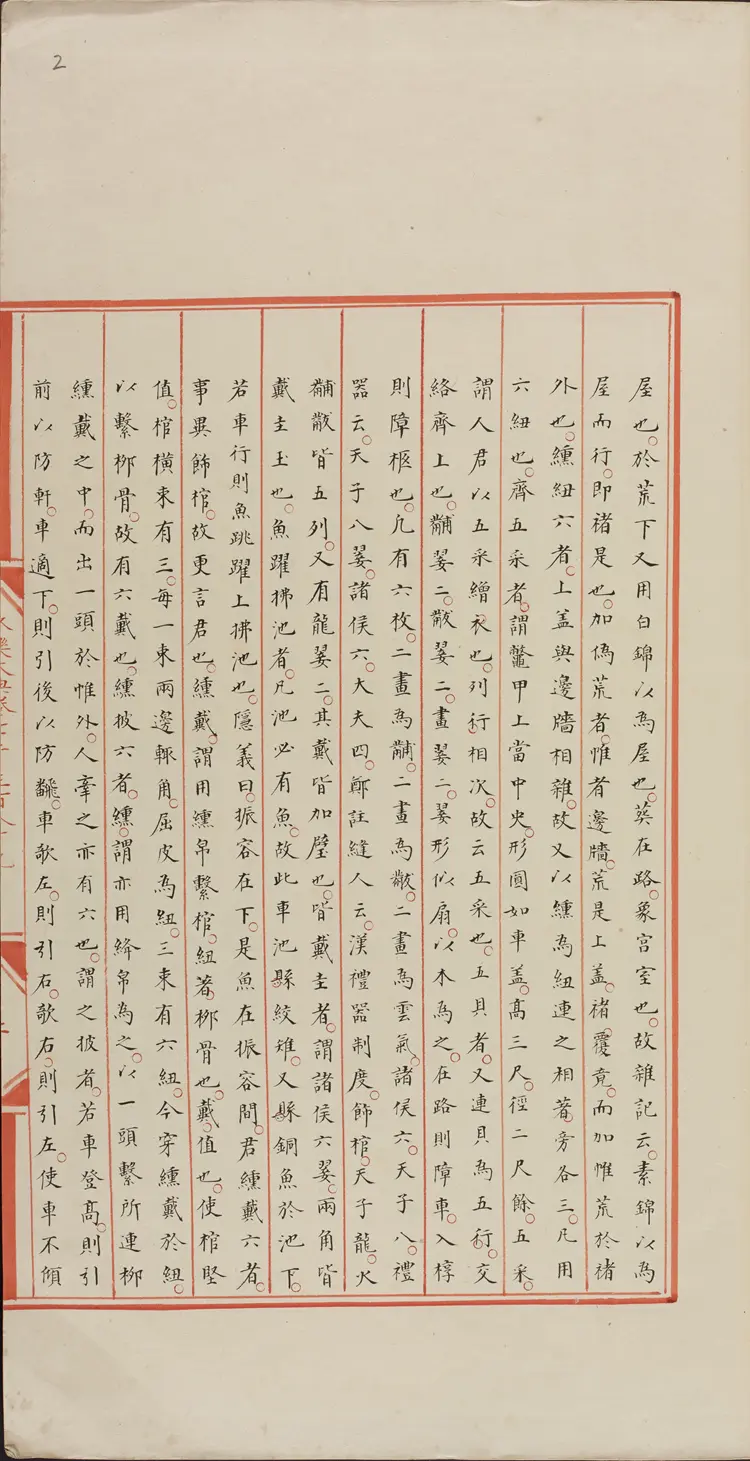 2
屋也。於荒下又用白錦以為屋也。葬在路。象宮室也。故雜記云。素錦以為
屋而行。即褚是也。加偽荒者。惟者邊牆。荒是上蓋。褚覆竟。而加惟荒於褚
外也。纁紐六者。上蓋與邊牆相雜。故又以纁為紐連之相著。旁各三。凡用
六紐也。齊五采者。謂鼈甲上當中央。形圓如車蓋。高三尺。徑二尺餘。五采。
謂人君以五采繒衣也。列行相次。故云五采也。五貝者。又連貝為五行。交
絡齊上也。黼翣二。黻翣二。畫翣二。翣形似扇。以木為之。在路則障車。入椁
則障柩也。凡有六枚。二畫為黼。二畫為黻。二畫為雲氣。諸侯六。天子八。禮
器云。天子八翣。諸侯六。大夫四。鄭註縫人云。漢禮器制度。飾棺。天子龍。火
黼黻皆五列。又有龍翣二。其戴皆加璧也。皆戴圭者。謂諸侯六翣。兩角皆
戴圭玉也。魚躍拂池者。凡池必有魚。故此車池縣絞雉。又縣銅魚於池下。
若車行則魚跳躍上拂池也。隱義曰。振容在下。是魚在振容間。君纁戴六者。
事異飾棺。故更言君也。纁戴。謂用纁帛繫棺。紐著栁骨也。戴值也。使棺堅
值。棺橫束有三。每一束兩邊輒角。屈皮為紐。三束有六紐。今穿纁戴於紐。
以繫栁骨。故有六戴也。纁披六者。纁。謂亦用絳帛為之。以一頭繫所連栁
纁戴之中。而出一頭於惟外。人牽之亦有六也。謂之披者。若車登高。則引
前以防軒。車適下。則引後以防翻。車欹左。則引右。欹右。則引左。使車不傾